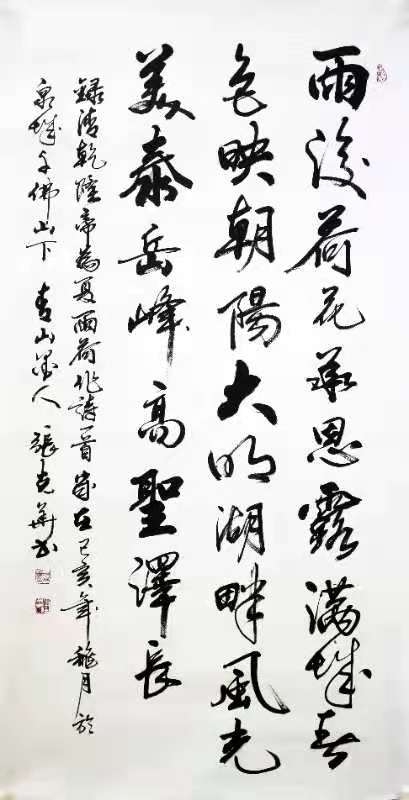 雨後荷花承恩露滿城春
色映朝陽大明湖畔風光
美泰岳峰高聖澤長
錄清乾隆帝為夏雨荷作詩一首歲在己亥年穐月於
泉城千佛山下 青山墨人 張克華書